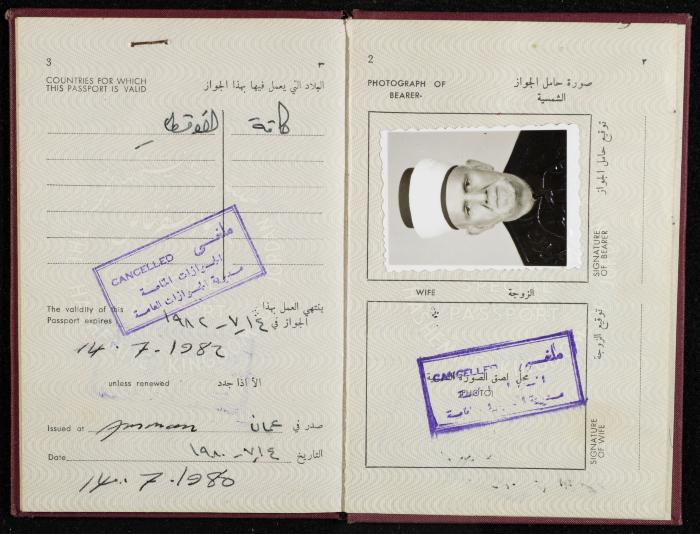 3
٣
COUNTRIES FOR WHICH
THIS PASSPORT IS VALID
البلاد التي يعمل فيها بهذا الجواز
كافة
ملغى
CANCELLED
الجوازات العامة
مديرية الجوازات العامة
The validity of this
Passport expires
ينتهي العمل بهذا
الجواز في ١٤-٧-١٩٨٢
14.7.1982
unless renewed
الا اذا جدد
Issued at Amman
صدر في عمان
Date
التاريخ ١٤-٧-١٩٨٠
14.7.1980
2
٢
PHOTOGRAPH OF
BEARER-
صورة حامل الجواز
الشمسية
توقيع حامل الجواز
SIGNATURE
OF BEARER
WIFE
الزوجة
توقيع الزوجة
SIGNATURE
OF WIFE
ملغى
CANCELLED
محل لصق الصورة
(PHOTO)